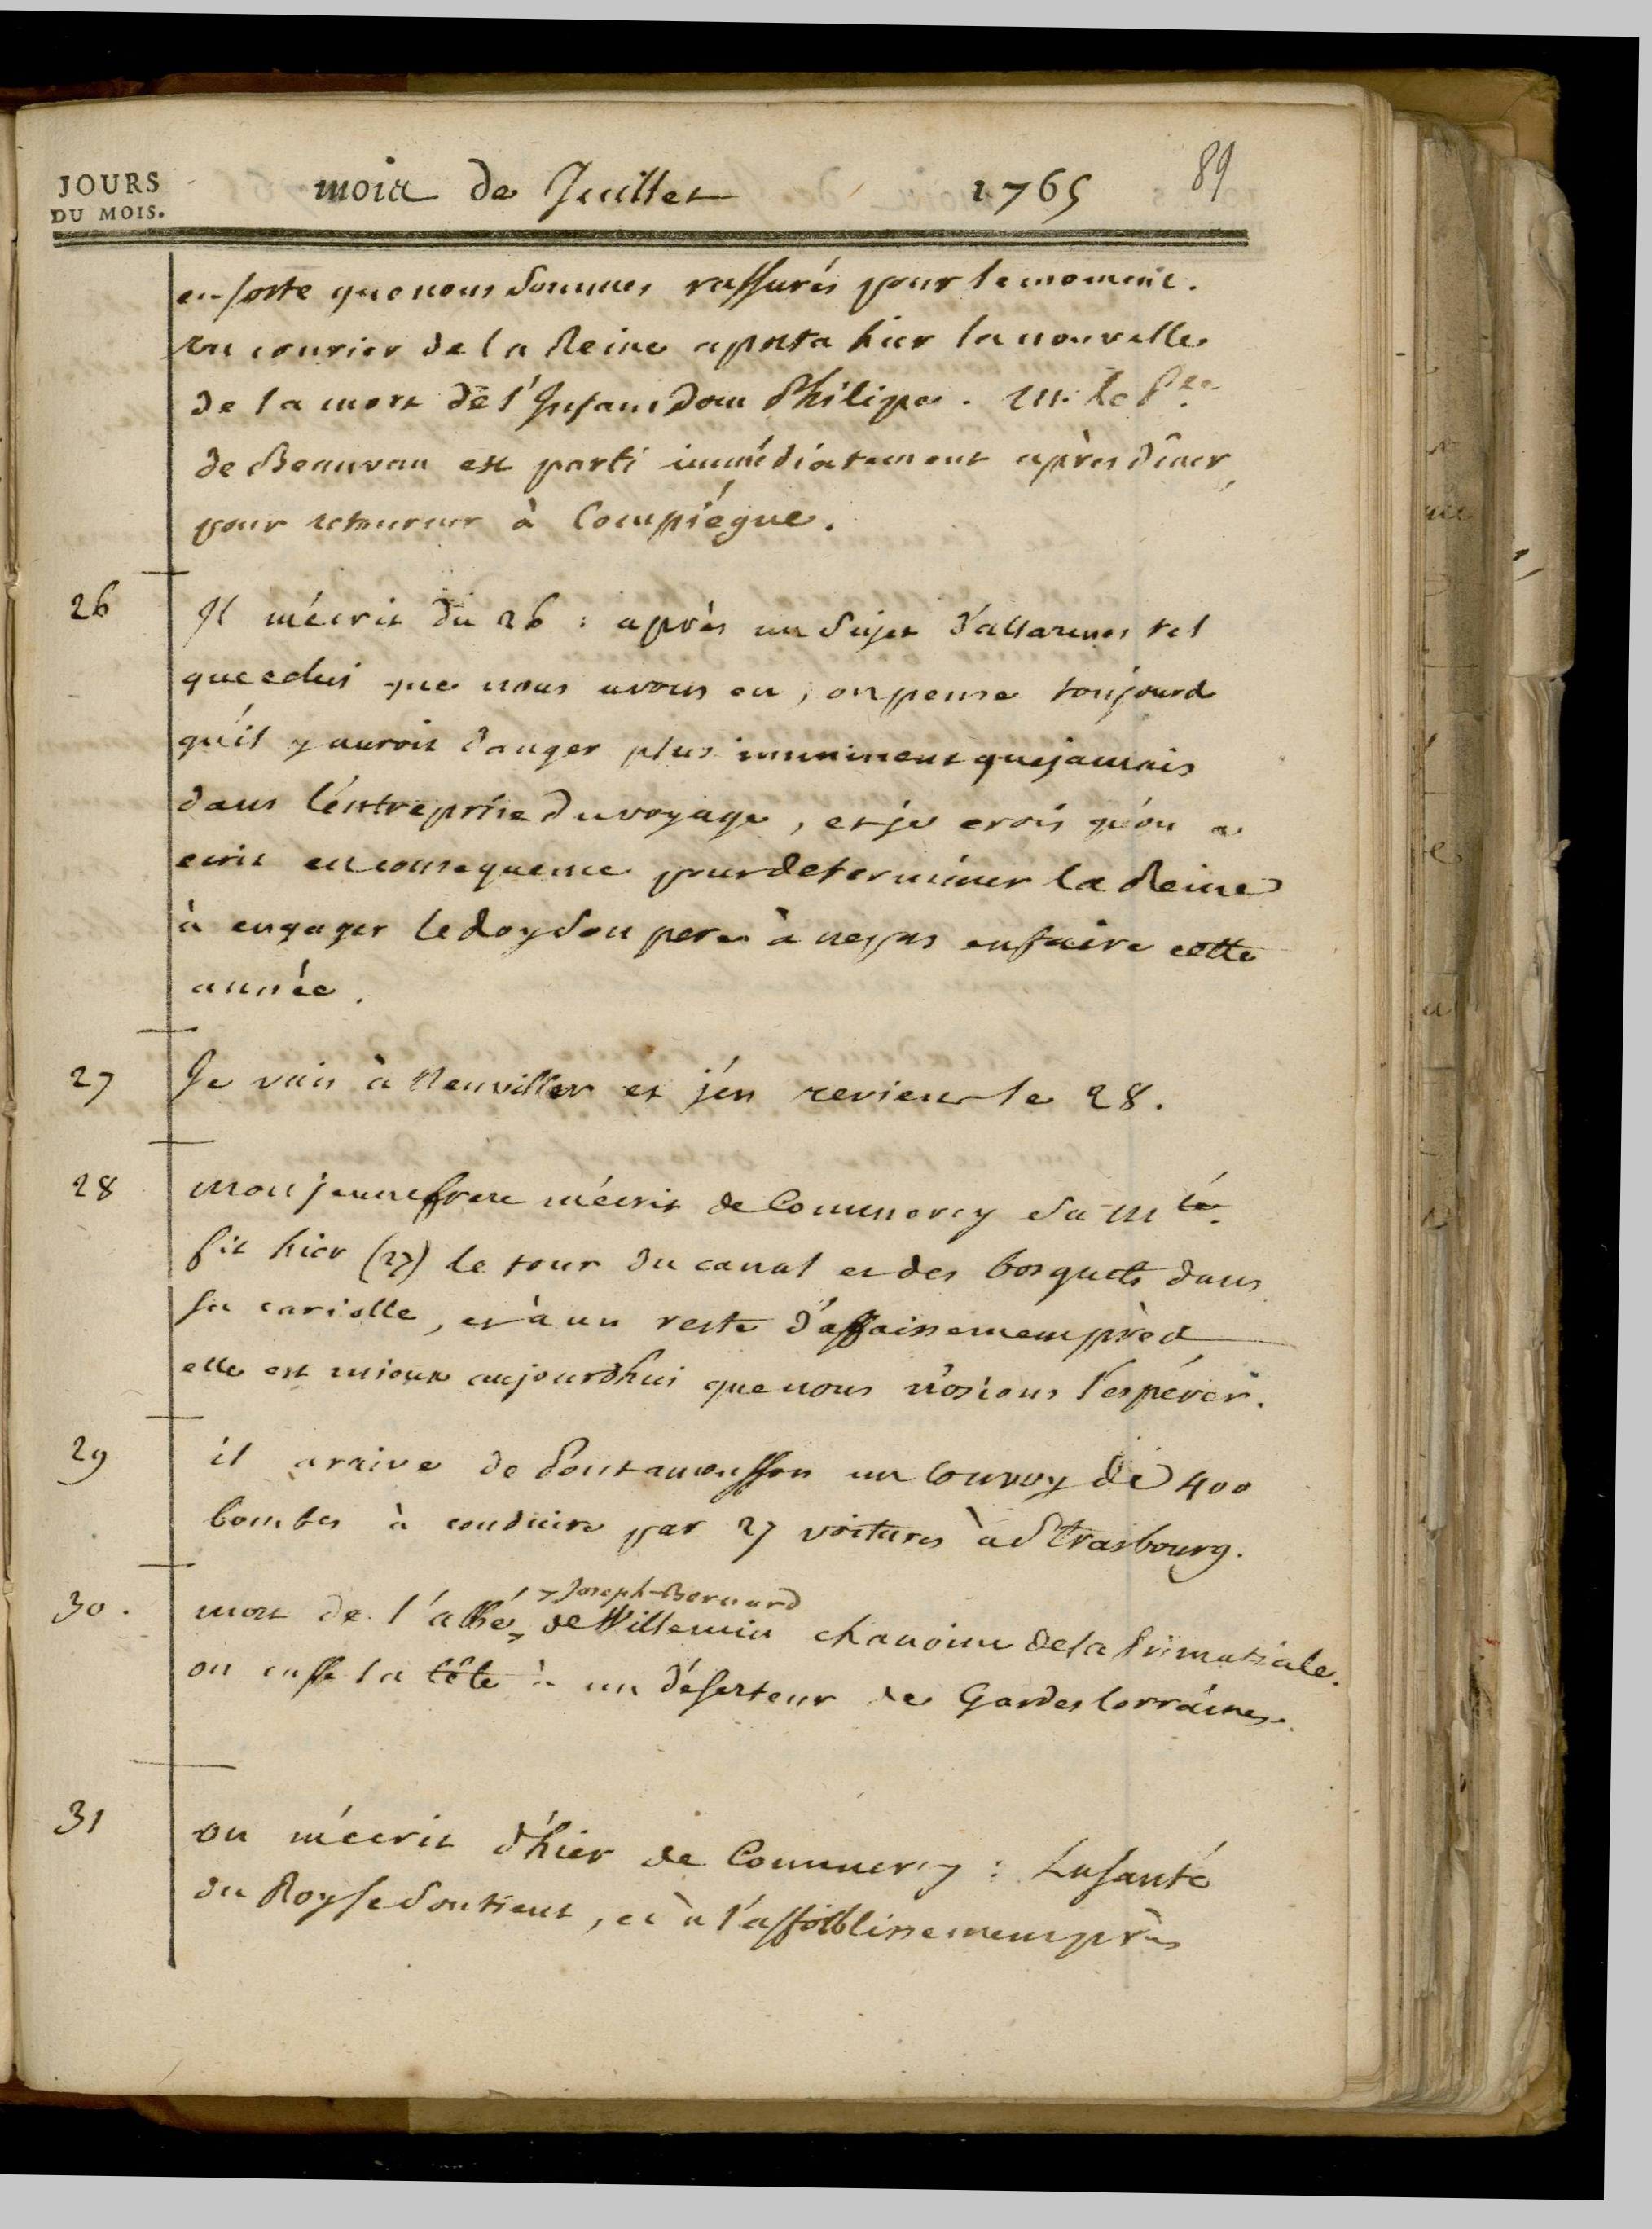 JOURS
DU MOIS.
mois de Juillet 1765 89
en sorte que nous sommes rassurés pour le moment.
un courier de la Reine aporta hier la nouvelle
de la mort de l'Infant Dom Philipe. M. le P.ce
de Beauvau est parti immédiatement après diner,
pour retourner à Compiégne.
26 Il m'écrit du 26 : après un sujet d'allarmes tel
que celui que nous avons eu, on pense toujours
qu'il y auroit danger plus imminent que jamais
dans l'entreprise du voyage, et je crois qu'on a
ecrit en consequence pour determiner la Reine
à engager le Roy son pere à ne pas en faire cette
année.
27 Je vais à Neuviller et j'en reviens le 28.
28 mon jeune frere m'écrit de Commercy sa M.té
fit hier (27) le tour du canal et des bosquets dans
sa cariolle, et à un reste d'affaissement près
elle est mieux aujourdhui que nous n'osions l'espérer.
29 il arrive de Pontamousson un convoy de 400
bombes à conduire par 27 voitures à Strasbourg.
30. mort de l'abbé Joseph-Bernard de Willemin chanoine de la Primatiale.
on casse la tête à un déserteur de Gardes lorraines.
31 on m'écrit d'hier de Commercy : La santé
du Roy se soutient, et à l'affoiblissement près